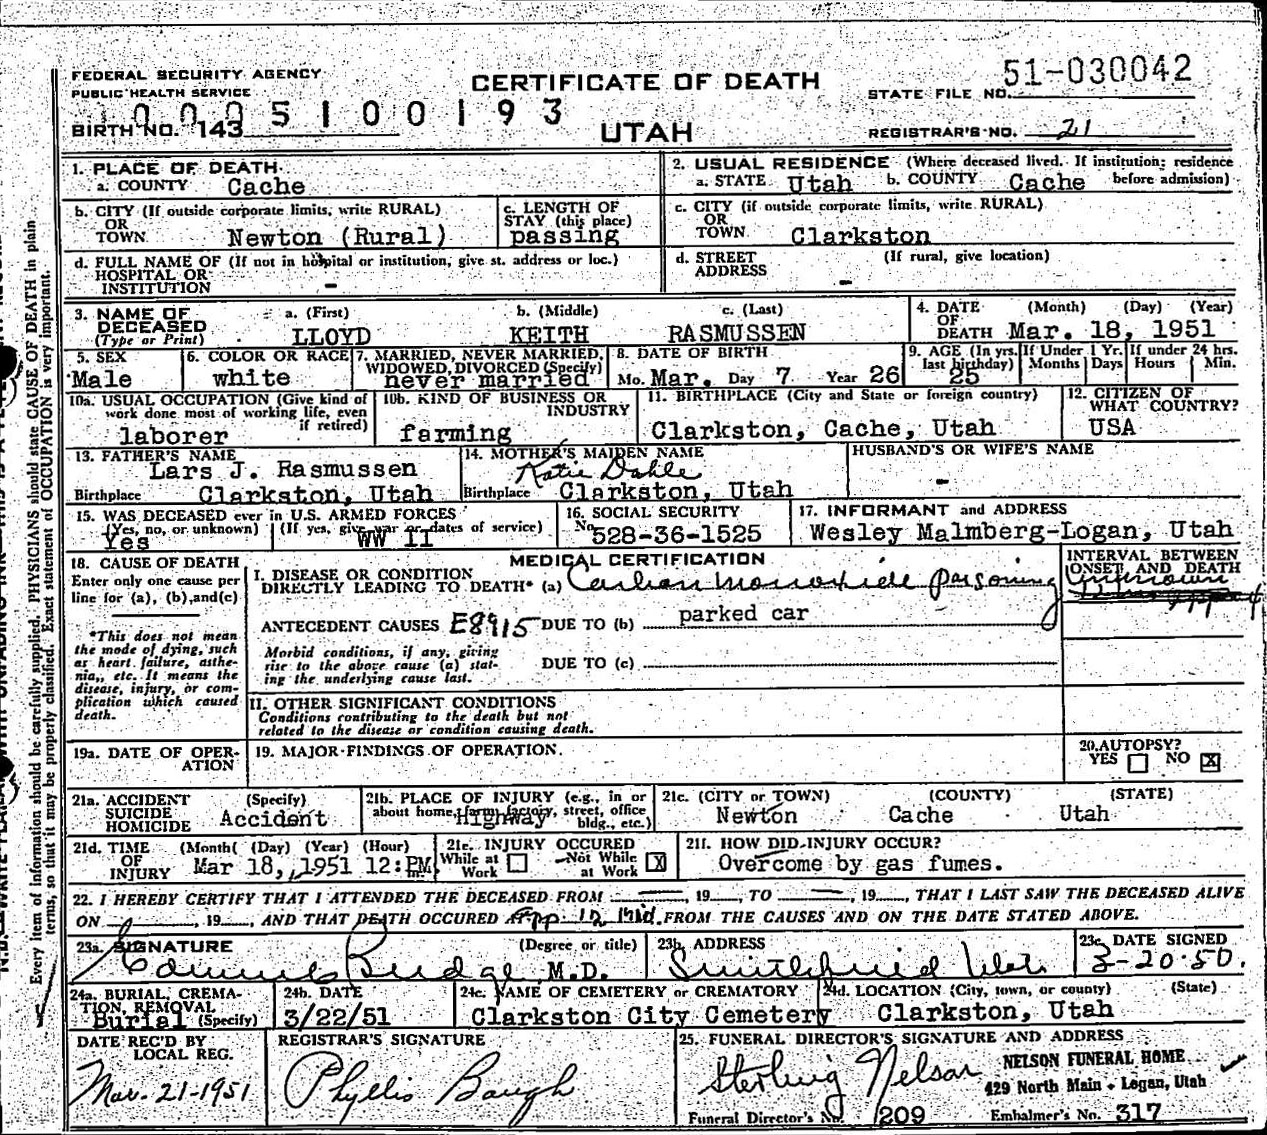 FEDERAL SECURITY AGENCY
PUBLIC HEALTH SERVICE
CERTIFICATE OF DEATH
51-030042
STATE FILE NO.
BIRTH NO. 143
UTAH
REGISTRAR'S NO. 21
1. PLACE OF DEATH
a. COUNTY Cache
2. USUAL RESIDENCE (Where deceased lived. If institution: residence before admission)
a. STATE Utah b. COUNTY Cache
b. CITY (If outside corporate limits, write RURAL)
OR
TOWN Newton (Rural)
c. LENGTH OF
STAY (this place)
passing
c. CITY (if outside corporate limits, write RURAL)
OR
TOWN Clarkston
d. FULL NAME OF (If not in hospital or institution, give st. address or loc.)
HOSPITAL OR
INSTITUTION -
d. STREET (If rural, give location)
ADDRESS -
3. NAME OF DECEASED
(Type or Print)
a. (First) b. (Middle) c. (Last)
LLOYD KEITH RASMUSSEN
4. DATE (Month) (Day) (Year)
OF
DEATH Mar. 18, 1951
5. SEX
Male
6. COLOR OR RACE
white
7. MARRIED, NEVER MARRIED,
WIDOWED, DIVORCED (Specify)
never married
8. DATE OF BIRTH
Mo. Mar. Day 7 Year 26
9. AGE (In yrs. last birthday)
25
If Under 1 Yr.
Months Days
If under 24 hrs.
Hours Min.
10a. USUAL OCCUPATION (Give kind of
work done most of working life, even
if retired)
laborer
10b. KIND OF BUSINESS OR
INDUSTRY
farming
11. BIRTHPLACE (City and State or foreign country)
Clarkston, Cache, Utah
12. CITIZEN OF
WHAT COUNTRY?
USA
13. FATHER'S NAME
Lars J. Rasmussen
Birthplace Clarkston, Utah
14. MOTHER'S MAIDEN NAME
Katie Dahle
Birthplace Clarkston, Utah
HUSBAND'S OR WIFE'S NAME
-
15. WAS DECEASED ever in U.S. ARMED FORCES
(Yes, no, or unknown) (If yes, give war or dates of service)
Yes WW II
16. SOCIAL SECURITY
No. 528-36-1525
17. INFORMANT and ADDRESS
Wesley Malmberg-Logan, Utah
18. CAUSE OF DEATH
Enter only one cause per
line for (a), (b), and (c)
*This does not mean
the mode of dying, such
as heart failure, asthe-
nia, etc. It means the
disease, injury, or com-
plication which caused
death.
MEDICAL CERTIFICATION
I. DISEASE OR CONDITION
DIRECTLY LEADING TO DEATH* (a) Carbon monoxide poisoning
INTERVAL BETWEEN
ONSET AND DEATH
Unknown
ANTECEDENT CAUSES E8915 DUE TO (b) parked car
Morbid conditions, if any, giving
rise to the above cause (a) stat-
ing the underlying cause last.
DUE TO (c)
II. OTHER SIGNIFICANT CONDITIONS
Conditions contributing to the death but not
related to the disease or condition causing death.
19a. DATE OF OPER-
ATION
19. MAJOR FINDINGS OF OPERATION.
20. AUTOPSY?
YES NO X
21a. ACCIDENT (Specify)
SUICIDE
HOMICIDE Accident
21b. PLACE OF INJURY (e.g., in or
about home, farm, factory, street, office
bldg., etc.)
Highway
21c. (CITY or TOWN) (COUNTY) (STATE)
Newton Cache Utah
21d. TIME (Month) (Day) (Year) (Hour)
OF
INJURY Mar 18, 1951 12: PM
21e. INJURY OCCURED
While at Work
Not While at Work X
21f. HOW DID INJURY OCCUR?
Overcome by gas fumes.
22. I HEREBY CERTIFY THAT I ATTENDED THE DECEASED FROM 19 , TO 19 , THAT I LAST SAW THE DECEASED ALIVE
ON , 19 , AND THAT DEATH OCCURED App 12 Mid. FROM THE CAUSES AND ON THE DATE STATED ABOVE.
23a. SIGNATURE (Degree or title)
Budge M.D.
23b. ADDRESS
Smithfield Utah
23c. DATE SIGNED
3-20-50.
24a. BURIAL, CREMA-
TION, REMOVAL
Burial (Specify)
24b. DATE
3/22/51
24c. NAME OF CEMETERY or CREMATORY
Clarkston City Cemetery
24d. LOCATION (City, town, or county) (State)
Clarkston, Utah
DATE REC'D BY
LOCAL REG.
Mar. 21-1951
REGISTRAR'S SIGNATURE
Phyllis Baugh
25. FUNERAL DIRECTOR'S SIGNATURE AND ADDRESS
Sterling Nelson
NELSON FUNERAL HOME
429 North Main - Logan, Utah
Funeral Director's No. 209 Embalmer's No. 317
Every item of information should be carefully supplied. PHYSICIANS should state CAUSE OF DEATH in plain
terms, so that it may be properly classified. Exact statement of OCCUPATION is very important.